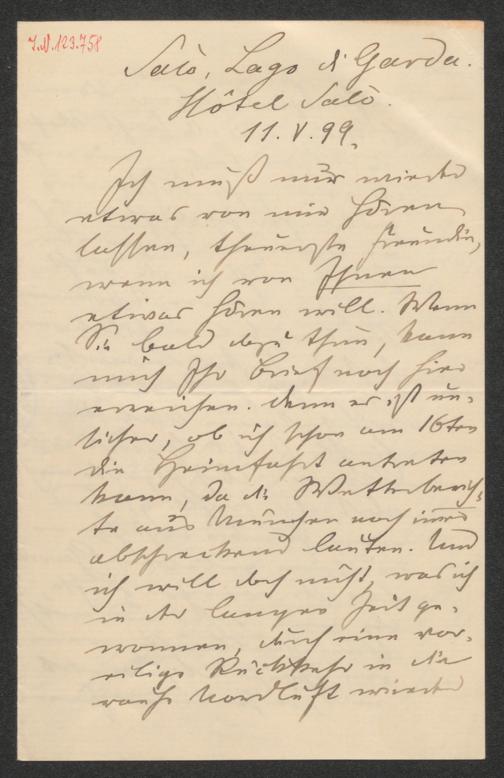 J.N. 123.758
Salò, Lago di Garda.
Hôtel Salò.
11. V. 99.
Ich muß nur wieder
etwas von mir hören
lassen, theuerste Freundin,
wenn ich von Ihnen
etwas hören will. Wenn
Sie bald dazu thun, kann
mich Ihr Brief noch hier
erreichen. Denn es ist un-
sicher, ob ich schon am 16ten
die Heimfahrt antreten
kann, da die Wetterberich-
te aus München noch immer
abschreckend lauten. Und
ich will doch nicht, was ich
in der langen Zeit ge-
wonnen, durch eine vor-
eilige Rückkehr in die
rauhe Nordluft wieder